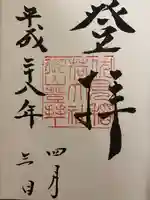 登拝
平成二十八年
四月
三日